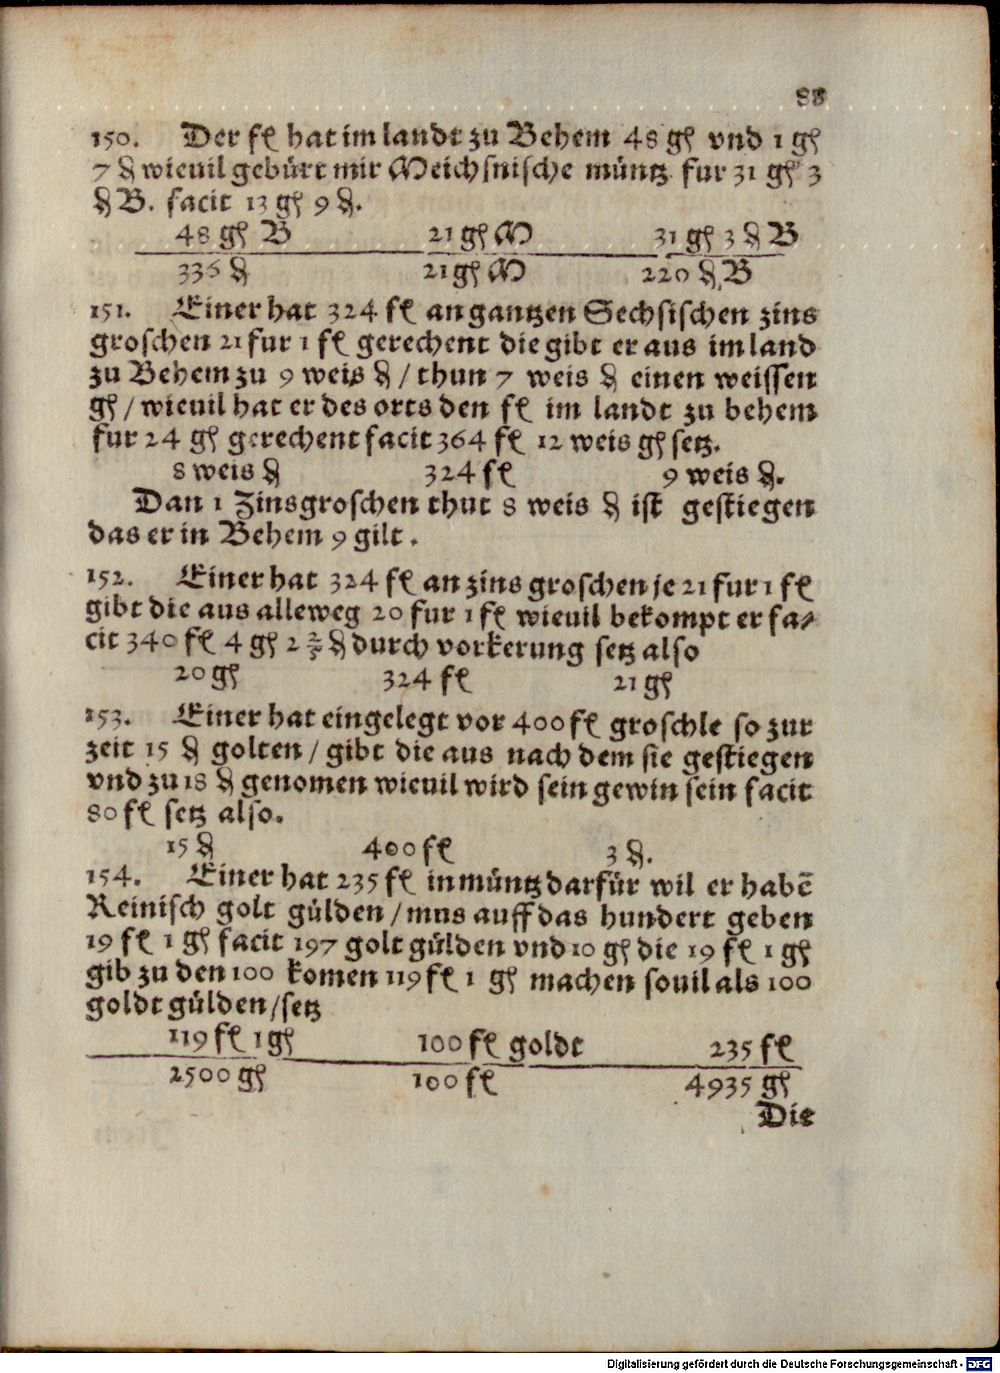 88
150. Der fl hat im landt zu Behem 48 gß vnd 1 gß
7 ₰ wieuil gebürt mir Meichsnische müntz fur 31 gß 3
₰ B. facit 13 gß 9 ₰.
48 gß B 21 gß M 31 gß 3 ₰ B
336 ₰ 21 gß M 220 ₰ B
151. Einer hat 324 fl an gantzen Sechsischen zins
groschen 21 fur 1 fl gerechent die gibt er aus im land
zu Behem zu 9 weis ₰ / thun 7 weis ₰ einen weissen
gß / wieuil hat er des orts den fl im landt zu behem
fur 24 gß gerechent facit 364 fl 12 weis gß setz.
8 weis ₰ 324 fl 9 weis ₰.
Dan 1 Zinsgroschen thut 8 weis ₰ ist gestiegen
das er in Behem 9 gilt.
152. Einer hat 324 fl an zins groschen je 21 fur 1 fl
gibt die aus alleweg 20 fur 1 fl wieuil bekompt er fa⸗
cit 340 fl 4 gß 2 2/5 ₰ durch vorkerung setz also
20 gß 324 fl 21 gß
153. Einer hat eingelegt vor 400 fl groschle so zur
zeit 15 ₰ golten / gibt die aus nach dem sie gestiegen
vnd zu 18 ₰ genomen wieuil wird sein gewin sein facit
80 fl setz also.
15 ₰ 400 fl 3 ₰.
154. Einer hat 235 fl in müntz darfür wil er habē
Reinisch golt gülden / mus auff das hundert geben
19 fl 1 gß facit 197 golt gülden vnd 10 gß die 19 fl 1 gß
gib zu den 100 komen 119 fl 1 gß machen souil als 100
goldt gülden / setz
119 fl 1 gß 100 fl goldt 235 fl
2500 gß 100 fl 4935 gß
Die
Digitalisierung gefördert durch die Deutsche Forschungsgemeinschaft - DFG